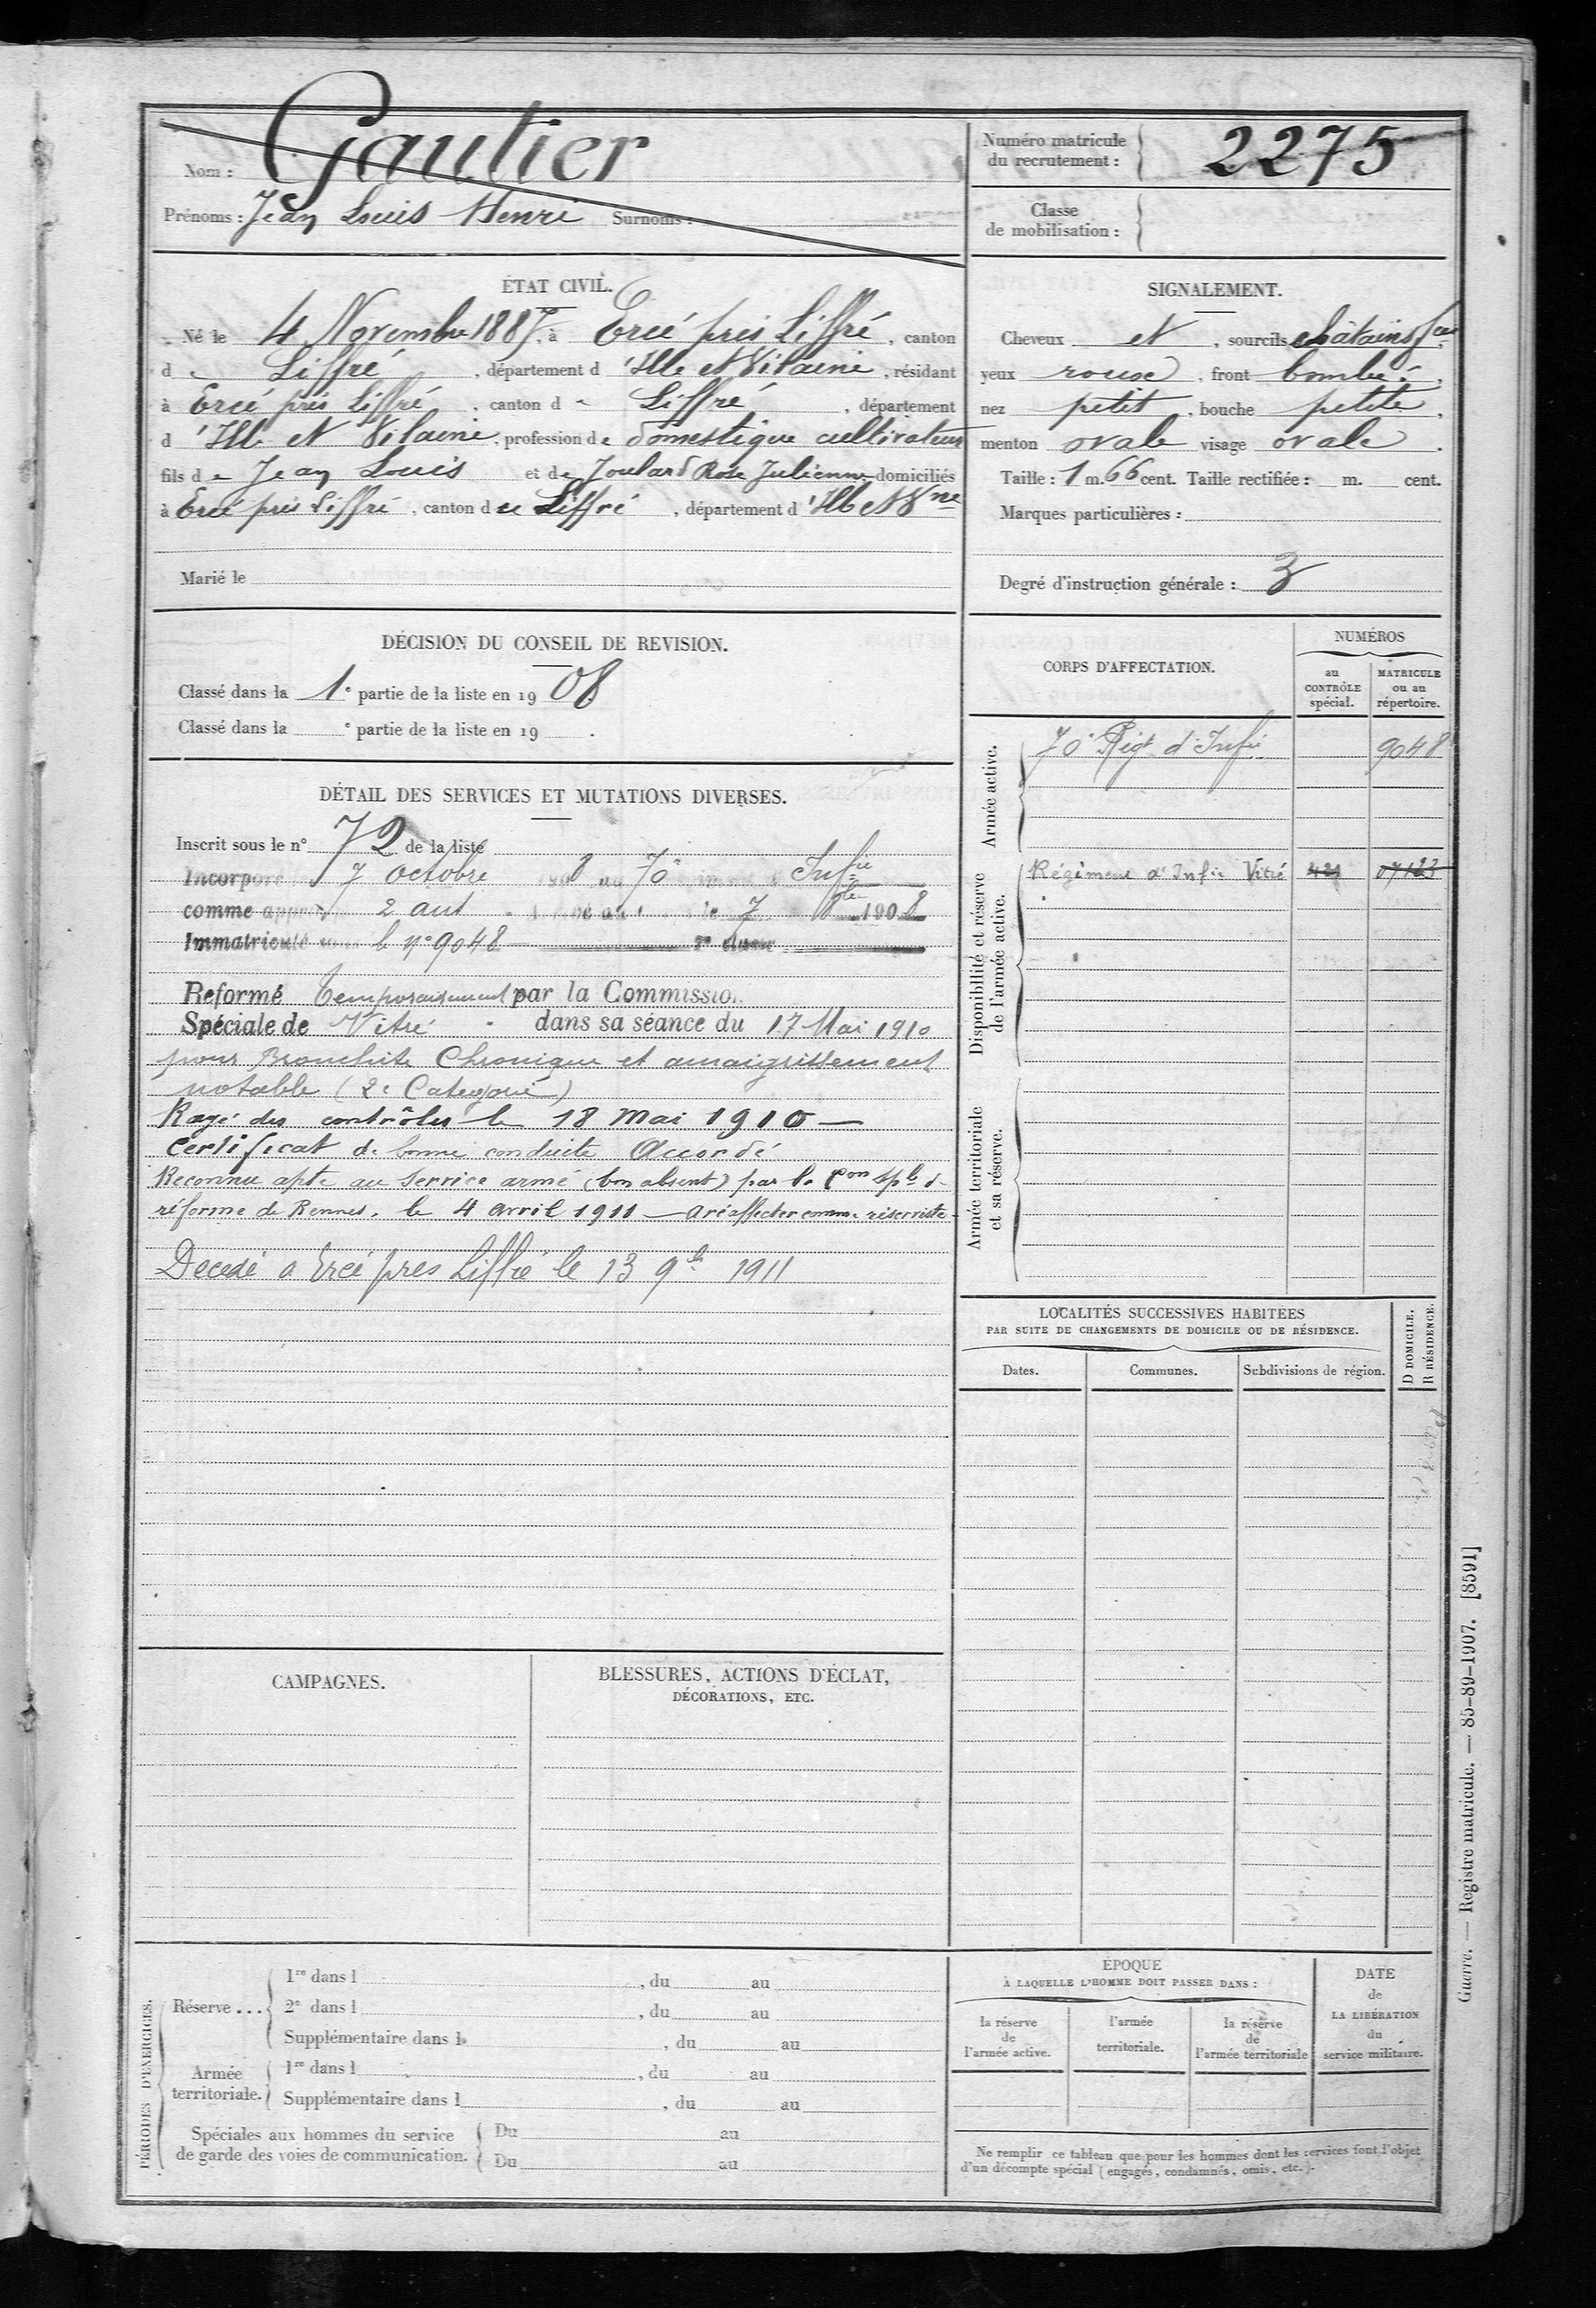 Nom : Gautier
Prénoms : Jean Louis Henri Surnoms :
Numéro matricule
du recrutement :
2275
Classe
de mobilisation :
ÉTAT CIVIL.
Né le 4 Novembre 1887, à Ercé près Liffré, canton
de Liffré, département d'Ille et Vilaine, résidant
à Ercé près Liffré, canton de Liffré, département
d'Ille et Vilaine, profession de domestique cultivateur
fils de Jean Louis et de Joulard Rose Julienne domiciliés
à Ercé près Liffré, canton de Liffré, département d'Ille et Vne
Marié le
SIGNALEMENT.
Cheveux et, sourcils châtains
yeux roux, front bombé,
nez petit, bouche petite,
menton ovale visage ovale.
Taille : 1 m. 66 cent. Taille rectifiée : m. cent.
Marques particulières :
Degré d'instruction générale : 3
DÉCISION DU CONSEIL DE REVISION.
Classé dans la 1e partie de la liste en 1908
Classé dans la e partie de la liste en 19 .
DÉTAIL DES SERVICES ET MUTATIONS DIVERSES.
Inscrit sous le n° 72 de la liste
Incorporé 7 octobre 1908 au 70e Infie
comme 2 ans 7 8bre 1908
Immatriculé sous le n° 9048 2e classe
Reformé temporairement par la Commission
Spéciale de Vitré dans sa séance du 17 Mai 1910
pour Bronchite Chronique et amaigrissement
notable (2e Categorie)
Rayé des contrôles le 18 Mai 1910 —
Certificat de bonne conduite Accordé
Reconnu apte au service armé (bon absent) par la Con sple de
réforme de Rennes, le 4 avril 1911 — à réaffecter comme réserviste
Décédé à Ercé près Liffré le 13 9bre 1911
CORPS D'AFFECTATION.
NUMÉROS
au
CONTRÔLE
spécial.
MATRICULE
ou au
répertoire.
Armée active.
70e Régt d'Infie 9048
Disponibilité et réserve
de l'armée active.
Régiment d'Infie Vitré 421 07123
Armée territoriale
et sa réserve.
LOCALITÉS SUCCESSIVES HABITÉES
PAR SUITE DE CHANGEMENTS DE DOMICILE OU DE RÉSIDENCE.
D DOMICILE.
R RÉSIDENCE.
Dates. Communes. Subdivisions de région.
CAMPAGNES.
BLESSURES, ACTIONS D'ÉCLAT,
DÉCORATIONS, ETC.
PÉRIODES D'EXERCICES.
Réserve...
1re dans l , du au
2e dans l , du au
Supplémentaire dans l , du au
Armée
territoriale.
1re dans l , du au
Supplémentaire dans l , du au
Spéciales aux hommes du service
de garde des voies de communication.
Du au
Du au
ÉPOQUE
À LAQUELLE L'HOMME DOIT PASSER DANS :
la réserve
de
l'armée active.
l'armée
territoriale.
la réserve
de
l'armée territoriale
DATE
de
LA LIBÉRATION
du
service militaire.
Ne remplir ce tableau que pour les hommes dont les services font l'objet
d'un décompte spécial (engagés, condamnés, omis, etc.).
Guerre. — Registre matricule. — 85-89-1907. [8591]